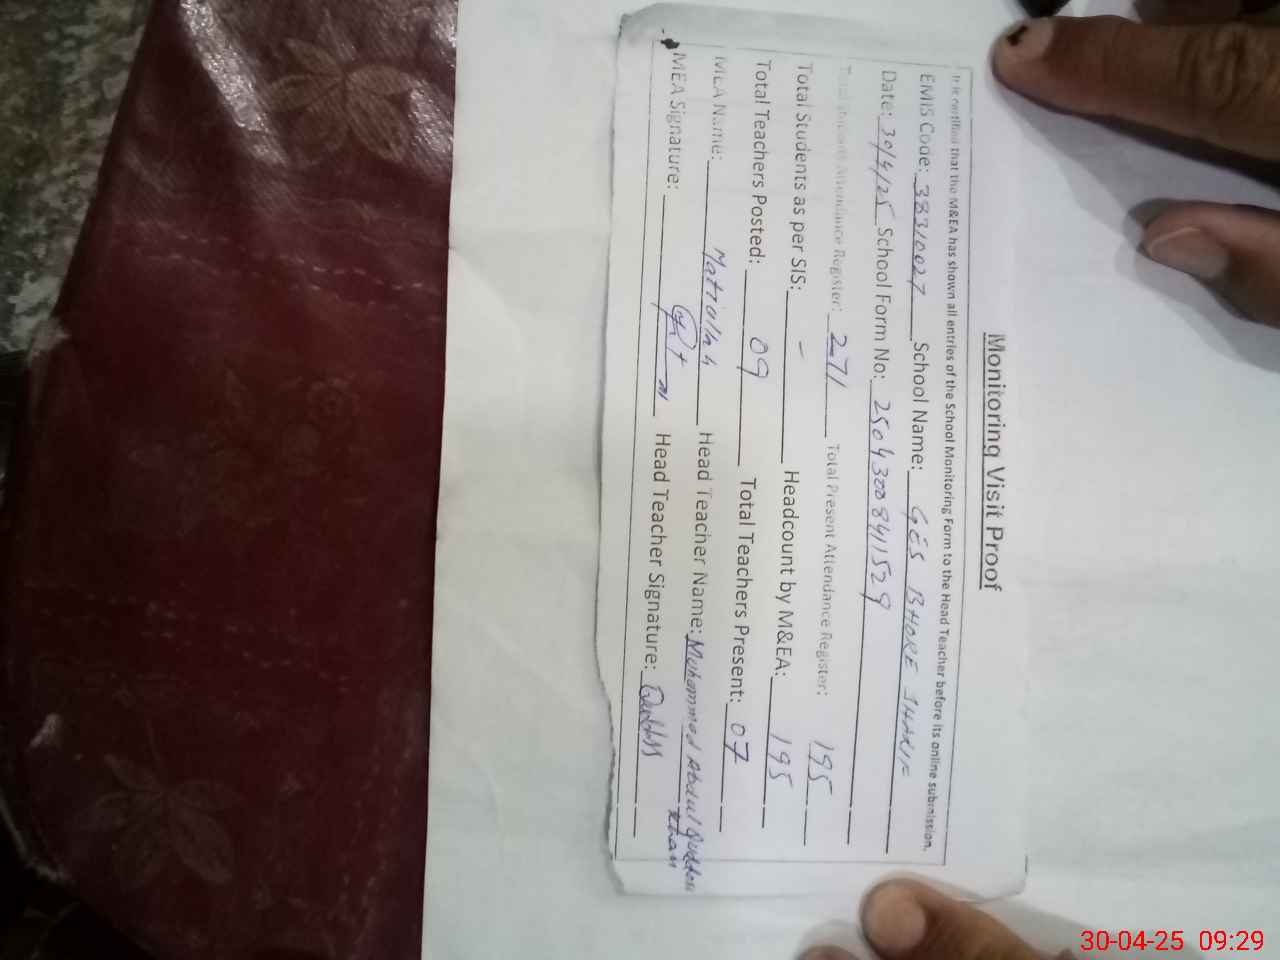 Monitoring Visit Proof
It is certified that the M&EA has shown all entries of the School Monitoring Form to the Head Teacher before its online submission.
EMIS Code: 38310027 School Name: GES BHORE SHARIF
Date: 30/4/25 School Form No: 2504300841529
Attendance Register: 271 Total Present Attendance Register: 195
Total Students as per SIS: - Headcount by M&EA: 195
Total Teachers Posted: 09 Total Teachers Present: 07
MEA Name: Head Teacher Name: Muhammad Abdul Quddus Khan
MEA Signature: Head Teacher Signature:
30-04-25 09:29